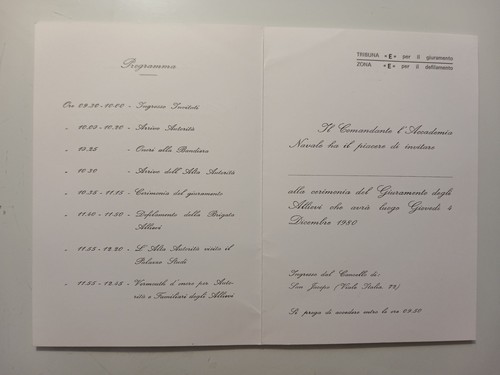 Programma
Ore 09.30 - 10.00 - Ingresso Invitati
" 10.03 - 10.20 - Arrivo Autorità
" 10.25 - Onori alla Bandiera
" 10.30 - Arrivo dell'Alta Autorità
" 10.35 - 11.15 - Cerimonia del giuramento
" 11.40 - 11.50 - Defilamento della Brigata
Allievi
" 11.55 - 12.20 - L'Alta Autorità visita il
Palazzo Studi
" 11.55 - 12.45 - Vermouth d'onore per Auto-
rità e Familiari degli Allievi
TRIBUNA «E» per il giuramento
ZONA «E» per il defilamento
Il Comandante l'Accademia
Navale ha il piacere di invitare
alla cerimonia del Giuramento degli
Allievi che avrà luogo Giovedì 4
Dicembre 1980
Ingresso dal Cancello di:
San Jacopo (Viale Italia 72)
Si prega di accedere entro le ore 09.50